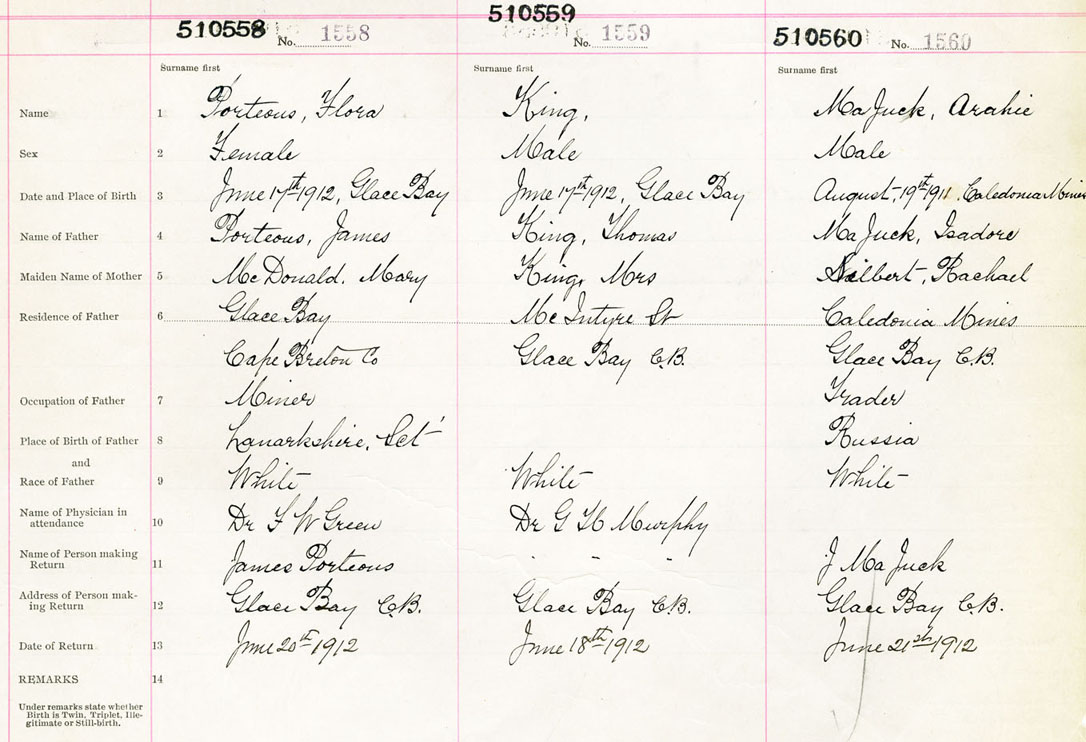 510558 No. 1558 510559 No. 1559 510560 No. 1560
Surname first Surname first Surname first
Name 1 Porteous, Flora King, MaJuck, Arahie
Sex 2 Female Male Male
Date and Place of Birth 3 June 17th 1912, Glace Bay June 17th 1912, Glace Bay August, 19th 1911. Caledonia Mines
Name of Father 4 Porteous, James King, Thomas MaJuck, Isadore
Maiden Name of Mother 5 McDonald, Mary King, Mrs Rachael
Residence of Father 6 Glace Bay McIntyre St Caledonia Mines
Cape Breton Co Glace Bay C.B. Glace Bay C.B.
Occupation of Father 7 Miner Trader
Place of Birth of Father 8 Lanarkshire, Sct Russia
and
Race of Father 9 White White White
Name of Physician in attendance 10 Dr F W Green Dr G H Murphy
Name of Person making Return 11 James Porteous " " " J MaJuck
Address of Person mak-ing Return 12 Glace Bay C.B. Glace Bay C.B. Glace Bay C.B.
Date of Return 13 June 20th 1912 June 18th 1912 June 21st 1912
REMARKS 14
Under remarks state whether
Birth is Twin, Triplet, Ille-
gitimate or Still-birth.